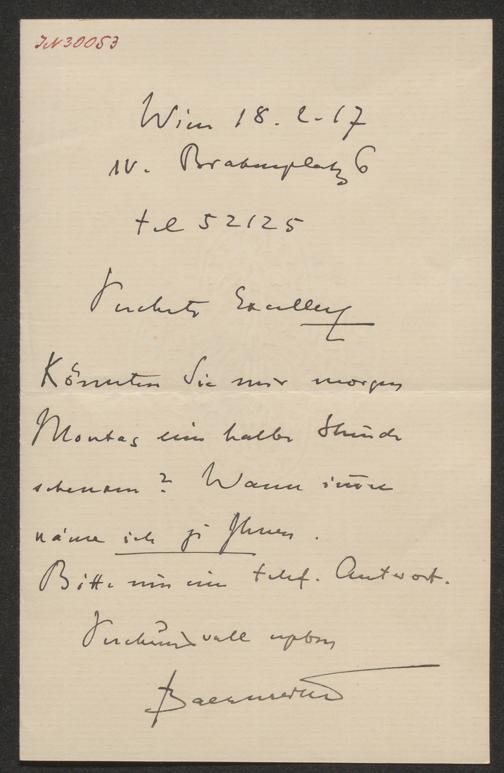 IN 30053
Wien 18. 2. 17
IV. Brahmsplatz 6
tel 52125
Verehrte Exzellenz
Könnten Sie mir morgen
Montag eine halbe Stunde
schenken? Wann immer
käme ich zu Ihnen.
Bitte um eine telef. Antwort.
Verehrungsvoll ergeben